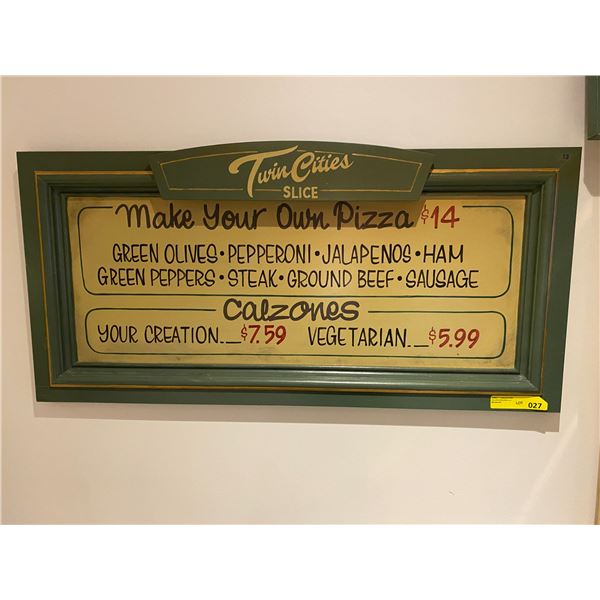 Twin Cities
SLICE
Make Your Own Pizza $14
GREEN OLIVES • PEPPERONI • JALAPENOS • HAM
GREEN PEPPERS • STEAK • GROUND BEEF • SAUSAGE
Calzones
YOUR CREATION..__$7.59 VEGETARIAN..__$5.99
LOT 027